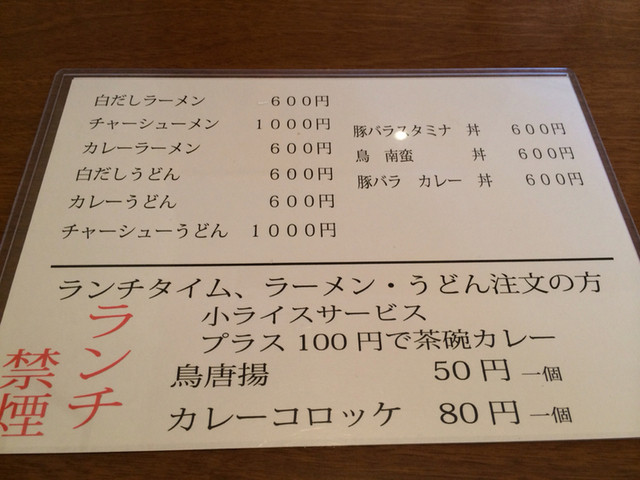 白だしラーメン 600円
チャーシューメン 1000円
カレーラーメン 600円
白だしうどん 600円
カレーうどん 600円
チャーシューうどん 1000円
豚バラスタミナ 丼 600円
鳥 南蛮 丼 600円
豚バラ カレー 丼 600円
ランチタイム、ラーメン・うどん注文の方
小ライスサービス
プラス100円で茶碗カレー
鳥唐揚 50円一個
カレーコロッケ 80円一個
ランチ
禁煙